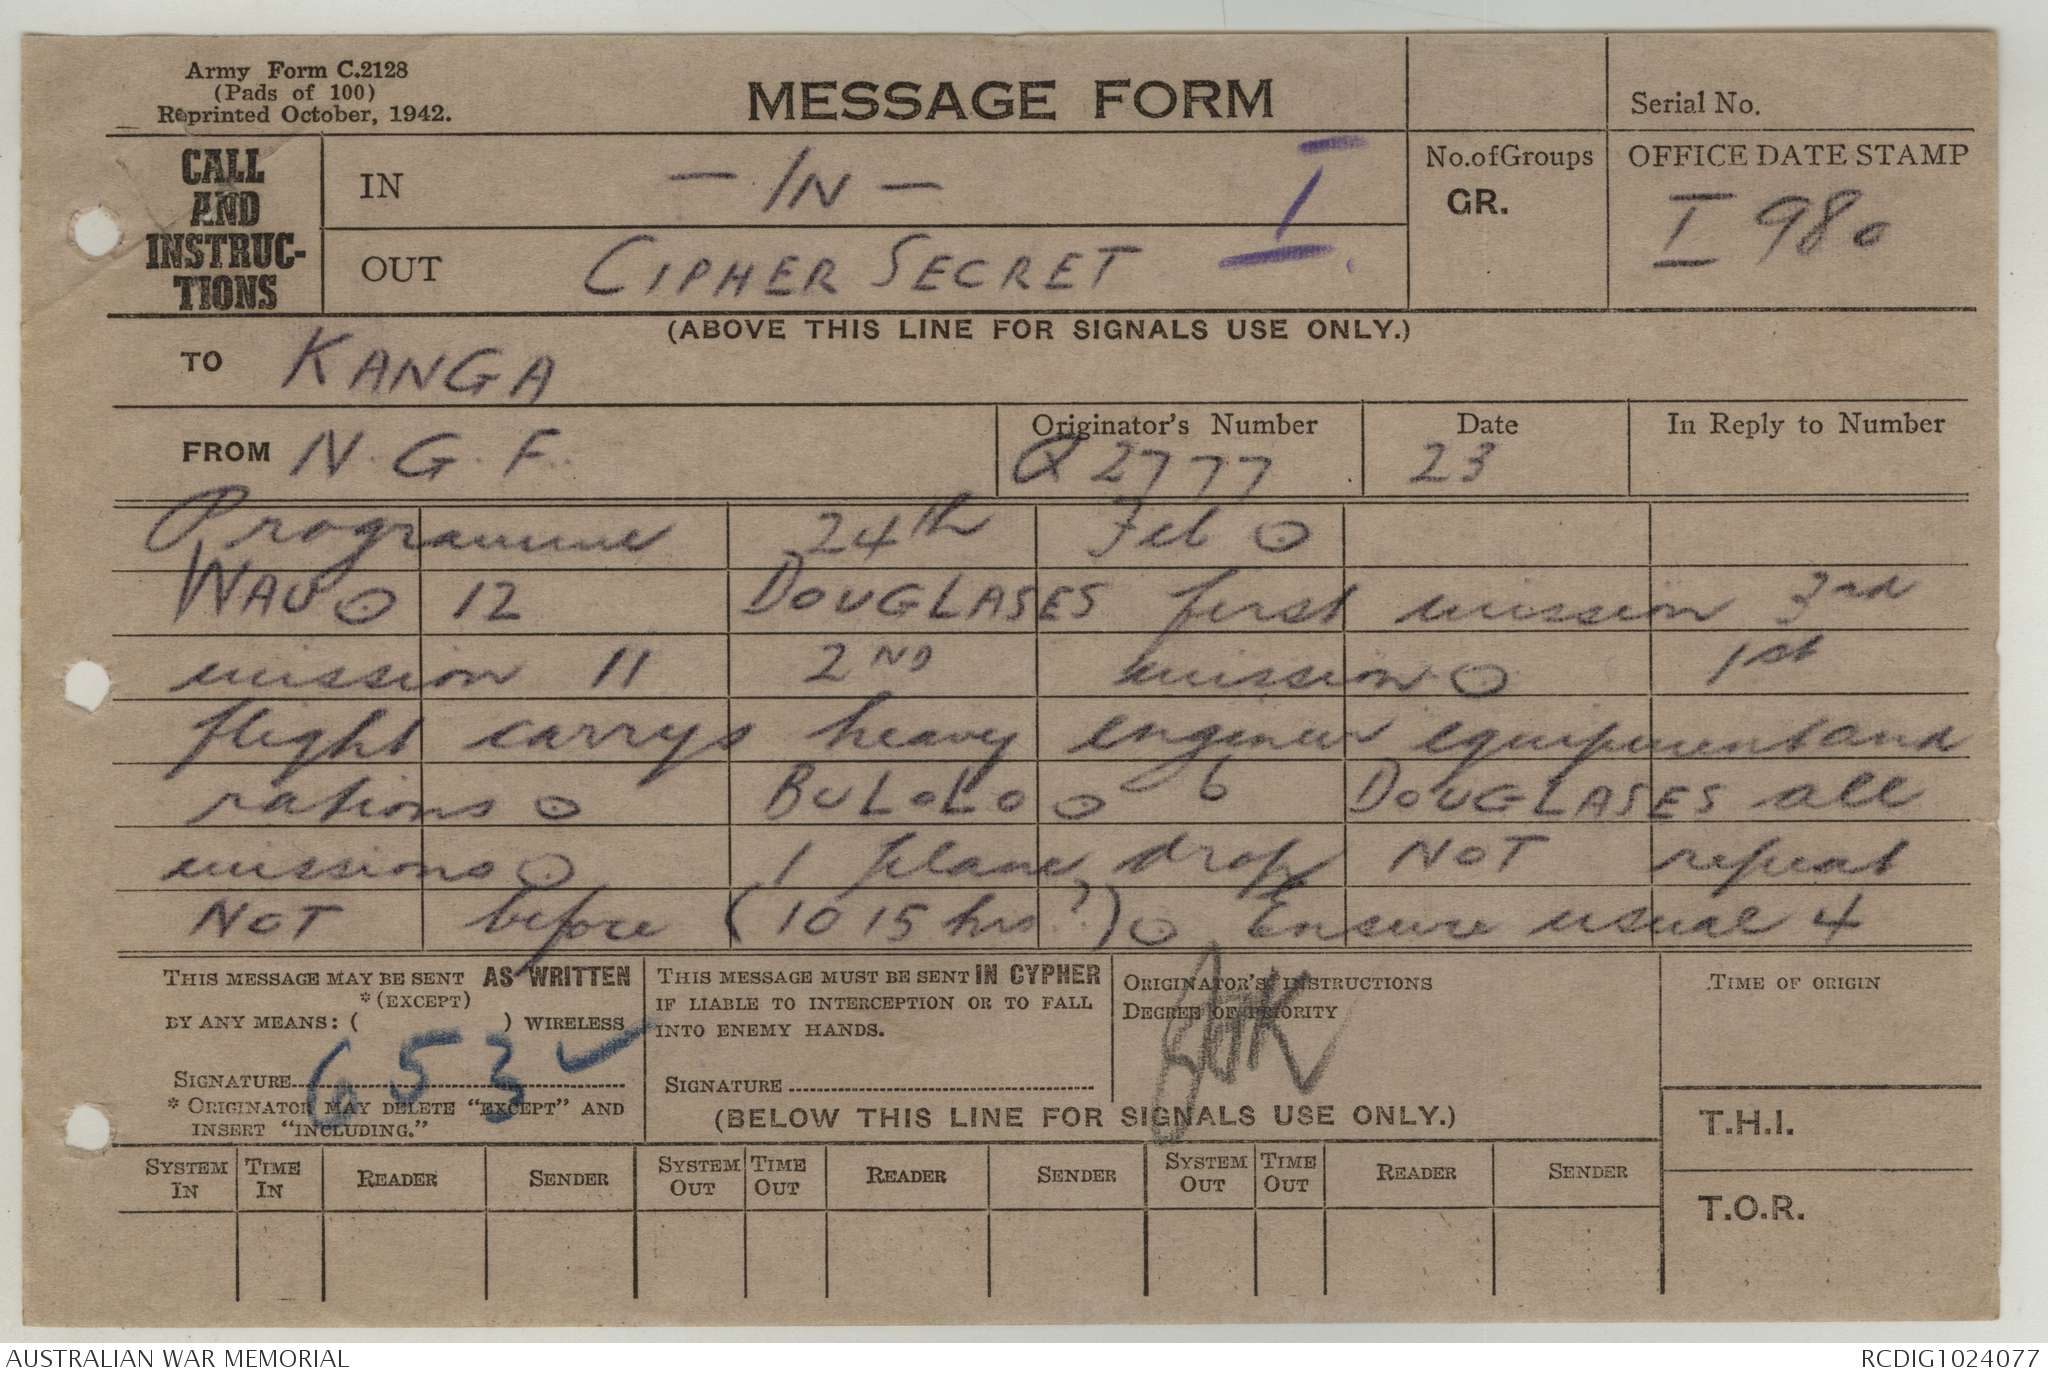 Army Form C.2128
(Pads of 100)
Reprinted October, 1942.
MESSAGE FORM
Serial No.
CALL
AND
INSTRUC-
TIONS
IN
- IN -
I
No. of Groups
GR.
OFFICE DATE STAMP
I 980
OUT
CIPHER SECRET
(ABOVE THIS LINE FOR SIGNALS USE ONLY.)
TO KANGA
FROM N. G. F.
Originator's Number
Q 2777
Date
23
In Reply to Number
Programme 24th Feb ⊙
WAU ⊙ 12 DOUGLASES first mission 3rd
mission 11 2ND mission ⊙ 1st
flight carrys heavy engineer equipment and
rations ⊙ BULOLO ⊙ 6 DOUGLASES all
missions ⊙ 1 plane drop NOT repeat
NOT before (1015 hrs ?) ⊙ Ensure usual 4
THIS MESSAGE MAY BE SENT AS WRITTEN
*(EXCEPT)
BY ANY MEANS: ( ) WIRELESS
653 ✓
SIGNATURE
* ORIGINATOR MAY DELETE "EXCEPT" AND
INSERT "INCLUDING."
THIS MESSAGE MUST BE SENT IN CYPHER
IF LIABLE TO INTERCEPTION OR TO FALL
INTO ENEMY HANDS.
SIGNATURE
ORIGINATOR'S INSTRUCTIONS
DEGREE OF PRIORITY
TIME OF ORIGIN
(BELOW THIS LINE FOR SIGNALS USE ONLY.)
T.H.I.
SYSTEM IN TIME IN READER SENDER SYSTEM OUT TIME OUT READER SENDER SYSTEM OUT TIME OUT READER SENDER
T.O.R.
AUSTRALIAN WAR MEMORIAL
RCDIG1024077